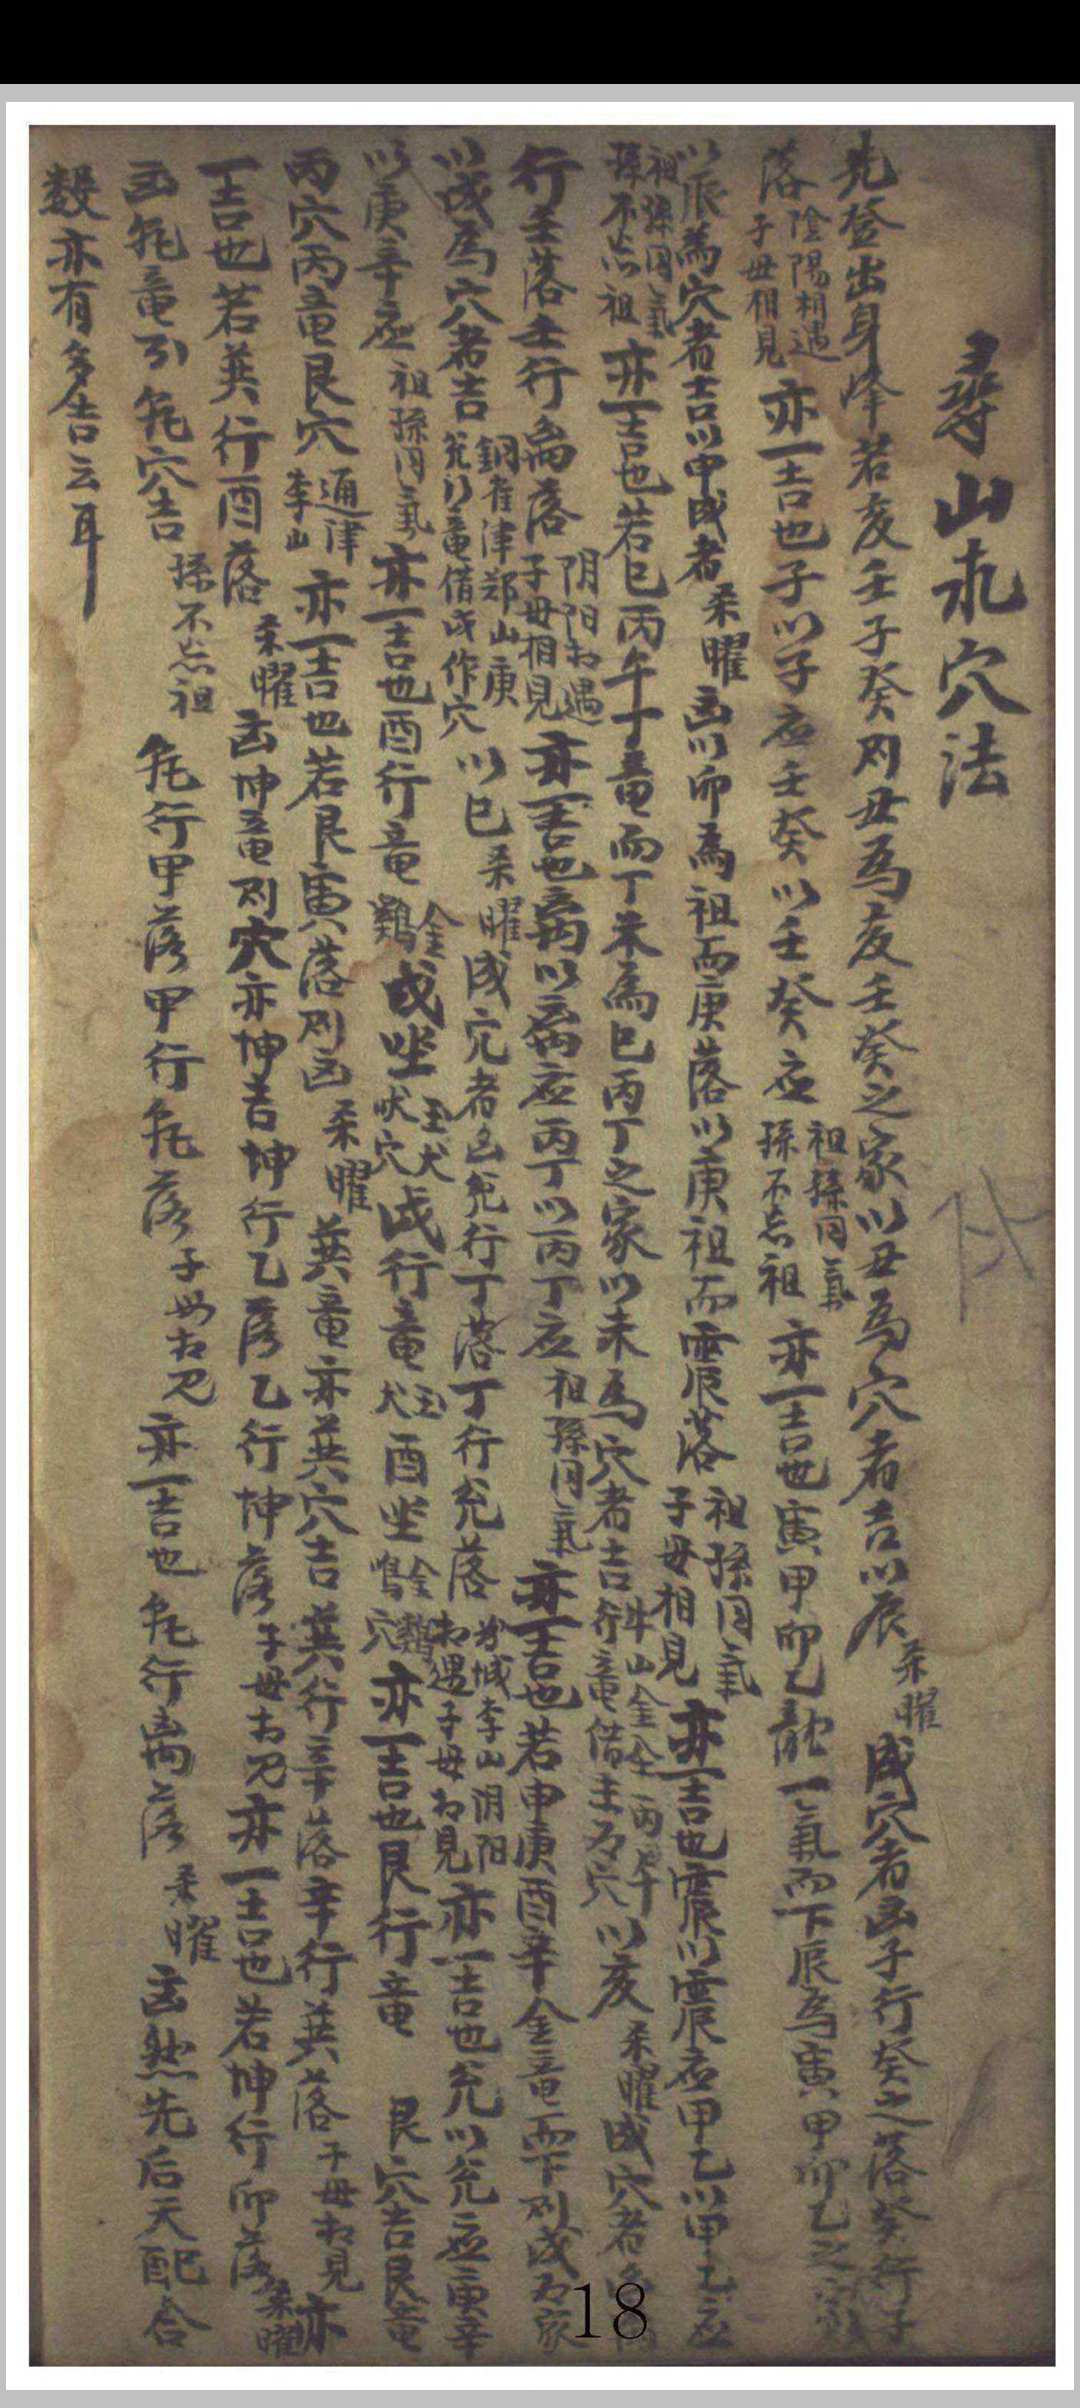 尋山求穴法
先登出身峰若亥壬子癸則丑為亥壬癸之家以丑為穴者吉以辰柔曜成穴者凶子行癸之落癸行子
落陰陽相遇子母相見亦一吉也子以子应壬癸以壬癸应祖孫同氣孫不忘祖亦一吉也寅甲卯乙龍一氣而下辰為寅甲卯乙之家
以辰為穴者吉以申成者柔曜凶以卯為祖而庚落以庚祖而震落祖孫同氣子母相見亦一吉也震以震应甲乙以甲乙应
祖孫同氣孫不忘祖亦一吉也若巳丙午丁竜而丁未為巳丙丁之家以未為穴者吉牛山金全丙午行竜借主为穴以亥柔曜成穴者凶
行壬落壬行离落阴阳相遇子母相見亦一吉也离以离应丙丁以丙丁应祖孫同氣亦一吉也若申庚酉辛金竜而下則戌为家
以戌為穴者吉銅雀津郑山庚兌行竜借戌作穴以巳柔曜成穴者凶兌行丁落丁行兌落李山阴阳相遇子母相見亦一吉也兌以兌应庚辛
以庚辛应祖孫同氣亦一吉也酉行竜金鷄戌坐玉犬吠穴戌行竜玉犬酉坐金鷄鳴穴亦一吉也艮行竜艮穴吉艮竜
丙穴丙竜艮穴通津李山亦一吉也若艮寅落則凶柔曜巽竜亦巽穴吉巽行辛落辛行巽落子母相見亦
一吉也若巽行酉落柔曜凶坤竜則穴亦坤吉坤行乙落乙行坤落子母相見亦一吉也若坤行卯落柔曜
凶乾竜引乾穴吉孫不忘祖乾行甲落甲行乾落子母相見亦一吉也乾行离落柔曜凶然先后天配合
数亦有多吉云耳
18